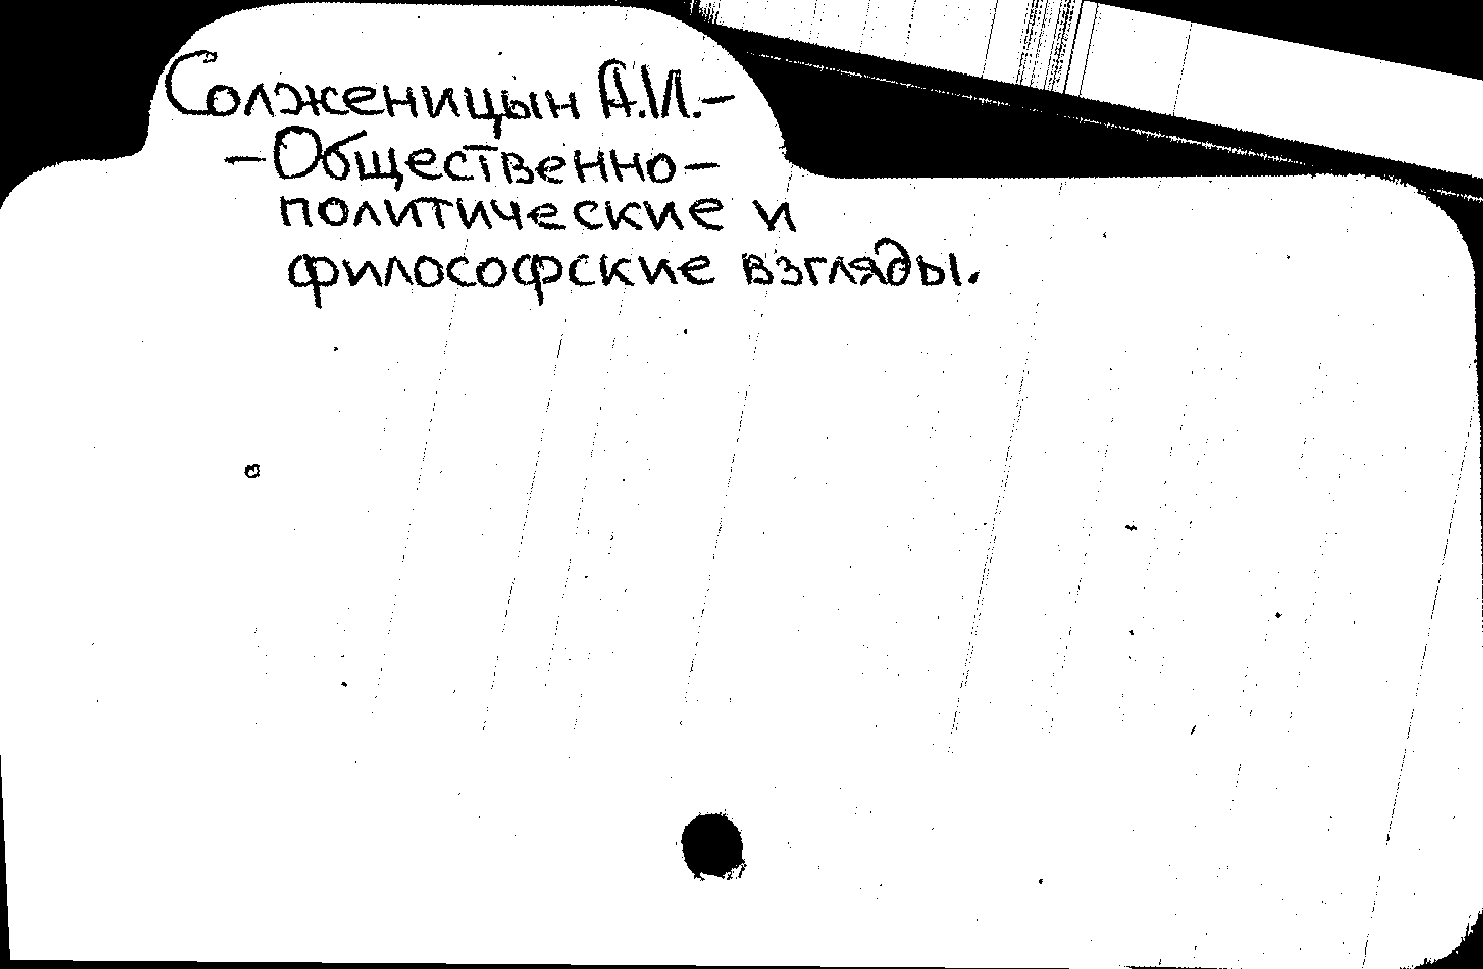 Солженицын А.И.–
–Общественно–
политические и
философские взгляды.